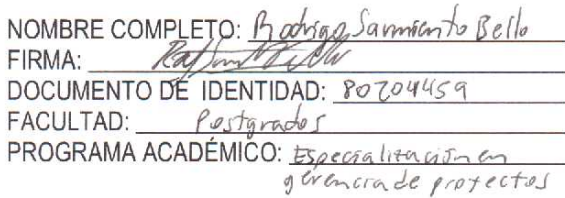 NOMBRE COMPLETO: Rodrigo Sarmiento Bello
FIRMA:
DOCUMENTO DE IDENTIDAD: 80204459
FACULTAD: Postgrados
PROGRAMA ACADÉMICO: Especialización en
gerencia de proyectos